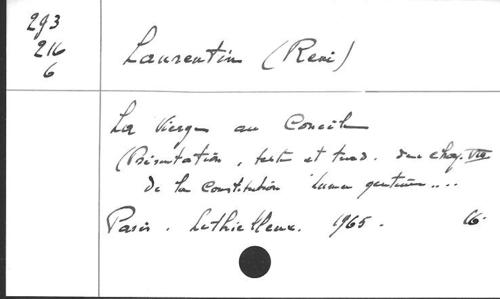 293
216
6
Laurentin (René)
La Vierge au Concile
(Présentation, texte et trad. du chap. VIII
de la Constitution Lumen gentium....
Paris. Lethielleux. 1965. 16.